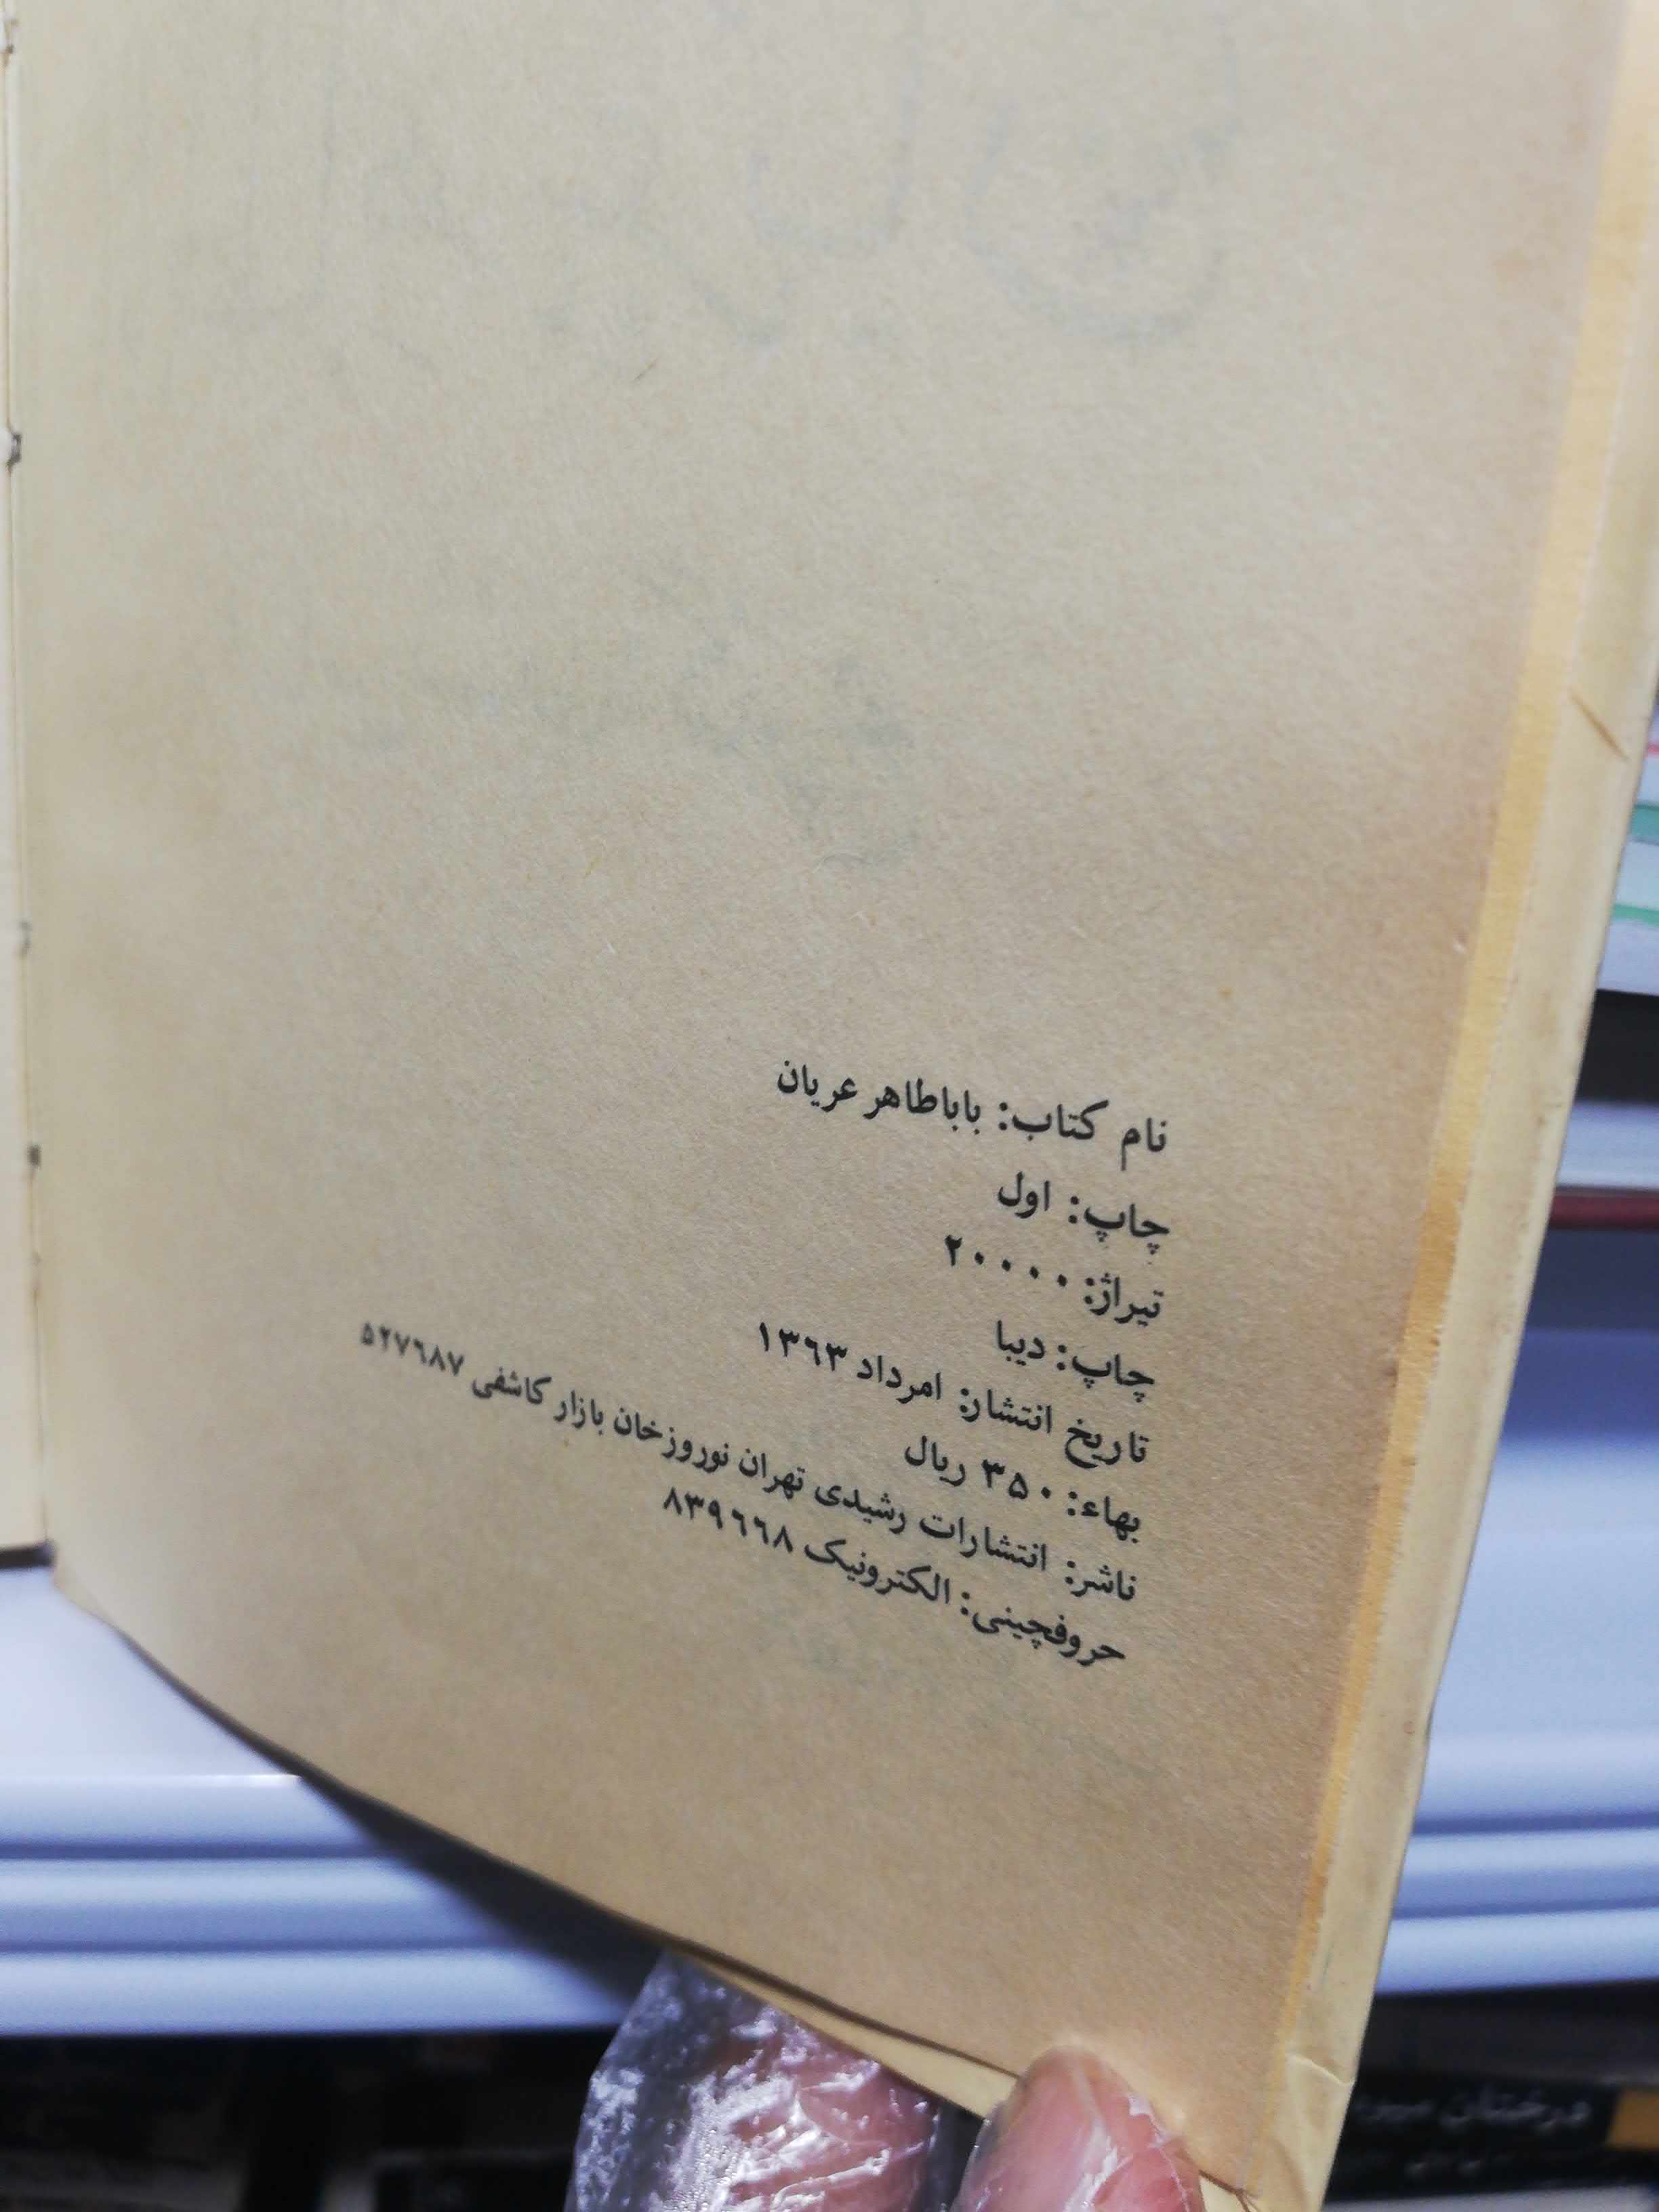 نام کتاب: باباطاهر عریان
چاپ: اول
تیراژ: ۲۰۰۰۰
چاپ: دیبا
تاریخ انتشار: امرداد ۱۳۶۳
بهاء: ۳۵۰ ریال
ناشر: انتشارات رشیدی تهران نوروزخان بازار کاشفی ۵۲۷۶۸۷
حروفچینی: الکترونیک ۸۳۹۶۶۸
درختان